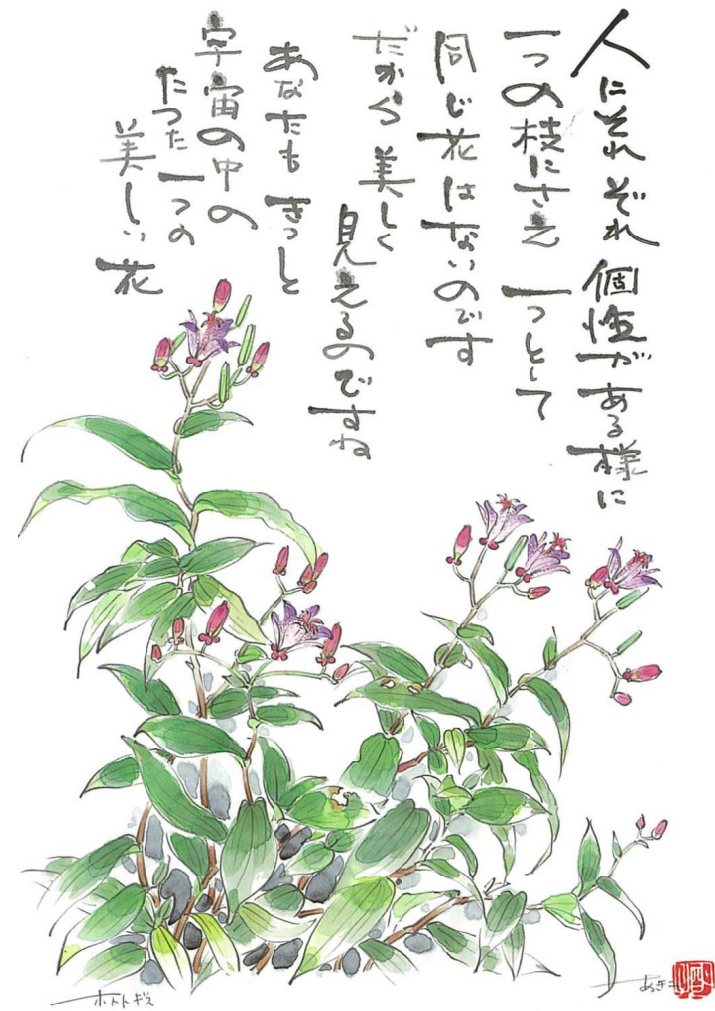 人にそれぞれ個性がある様に
一つの枝にさえ一つとして
同じ花はないのです
だから美しく
見えるのですね
あなたもきっと
宇宙の中の
たった一つの
美しい花
ホトトギス
あきこ